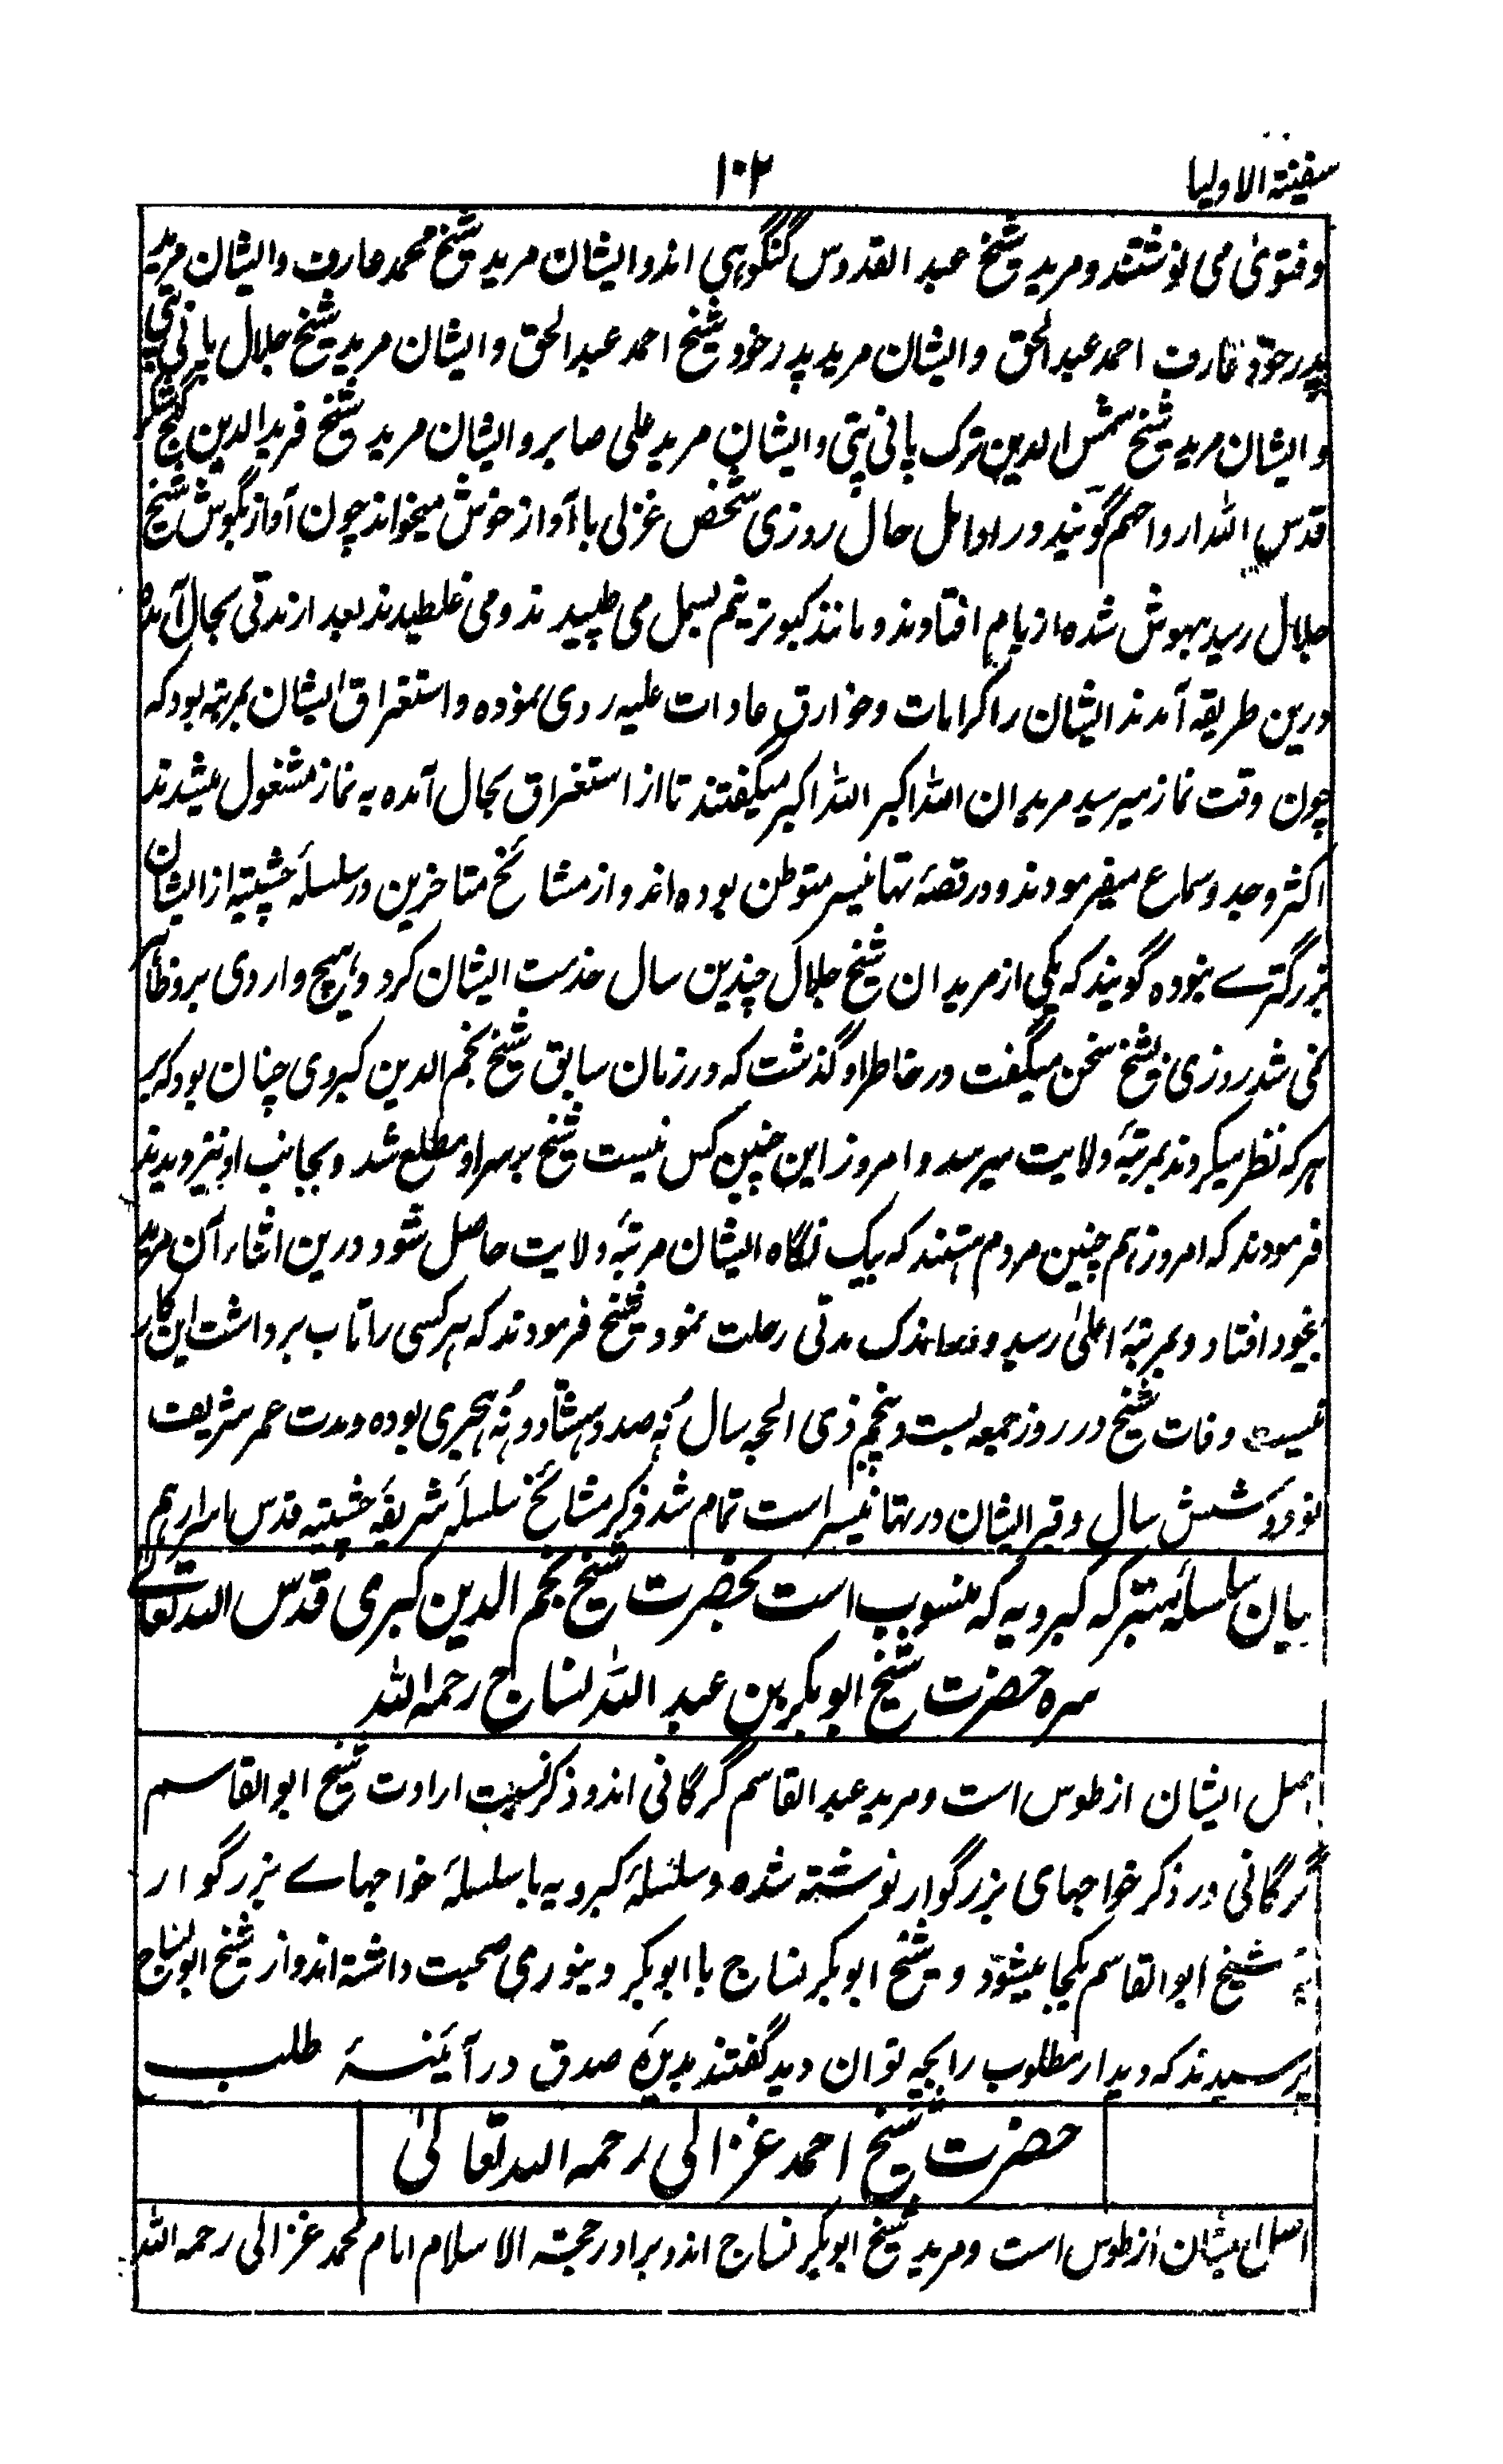 سفینة الاولیا
۱۰۲
و فتویٰ می نوشتند و مرید شیخ عبد القدوس گنگوہی اند و ایشان مرید شیخ محمد عارف و ایشان مرید
پدر خود عارف احمد عبد الحق و ایشان مرید پدر خود شیخ احمد عبد الحق و ایشان مرید شیخ جلال پانی پتی
و ایشان مرید شیخ شمس الدین ترک پانی پتی و ایشان مرید علی صابر و ایشان مرید شیخ فرید الدین گنج شکر
قدس اللہ ارواحہم گویند در اوایل حال روزی شخص غزلی با آواز خوش میخواند چون آواز بگوش شیخ
جلال رسید بیهوش شده از بام افتادند و مانند کبوتر نیم بسمل می طپیدند و می غلطیدند بعد از مدتی بحال آمده
درین طریقه آمدند ایشان را کرامات و خوارق عادات علیه روی نموده و استغراق ایشان بمرتبه بود که
چون وقت نماز میرسید مریدان اللہ اکبر اللہ اکبر میگفتند تا از استغراق بحال آمده به نماز مشغول میشدند
اکثر وجد و سماع میفرمودند و در قصبۂ تھانیسر متوطن بوده اند و از مشائخ متاخرین در سلسلۂ چشتیه از ایشان
بزرگترے نبوده گویند که یکی از مریدان شیخ جلال چندین سال خدمت ایشان کرد و هیچ واردی برو ظاہر
نمی شد روزی شیخ سخن میگفت در خاطر او گذشت که در زمان سابق شیخ نجم الدین کبروی چنان بود که بر
ہر که نظر میکردند بمرتبۂ ولایت میرسید و امروز این چنین کس نیست شیخ بر سر او مطلع شد و بجانب او تیز دیدند
فرمودند که امروز ہم چنین مردم ہستند که بیک نگاه ایشان مرتبۂ ولایت حاصل شود درین اثناء آن مرید
بیخود افتاد و بمرتبۂ اعلیٰ رسید و بعد اندک مدتی رحلت نمود شیخ فرمودند که ہر کسی را تاب برداشت این کار
نیست وفات شیخ در روز جمعه بست و پنجم ذی الحجه سال نُه صد و ہشتاد و نُه ہجری بوده و مدت عمر شریف
نود و شش سال و قبر ایشان در تھانیسر است تمام شد ذکر مشائخ سلسلۂ شریفۂ چشتیه قدس اسرارہم
بیان سلسلۂ متبرکه کبرویه که منسوب است بحضرت شیخ نجم الدین کبری قدس اللہ تعالے
سره حضرت شیخ ابوبکر بن عبد اللہ نساج رحمه اللہ
اصل ایشان از طوس است و مرید عبد القاسم گرگانی اند و ذکر نسبت ارادت شیخ ابو القاسم
گرگانی در ذکر خواجهای بزرگوار نوشته شده و سلسلۂ کبرویه با سلسلۂ خواجهاے بزرگوار
شیخ ابو القاسم یکجا میشود و شیخ ابوبکر نساج با ابوبکر دینوری صحبت داشته اند و از شیخ ابوبکر نساج
پرسیدند که دیدار مطلوب را بچه توان دید گفتند بدیدۂ صدق در آئینۂ طلب
حضرت شیخ احمد غزالی رحمه اللہ تعالیٰ
اصل ایشان از طوس است و مرید شیخ ابوبکر نساج اند و برادر حجته الاسلام امام محمد غزالی رحمه اللہ